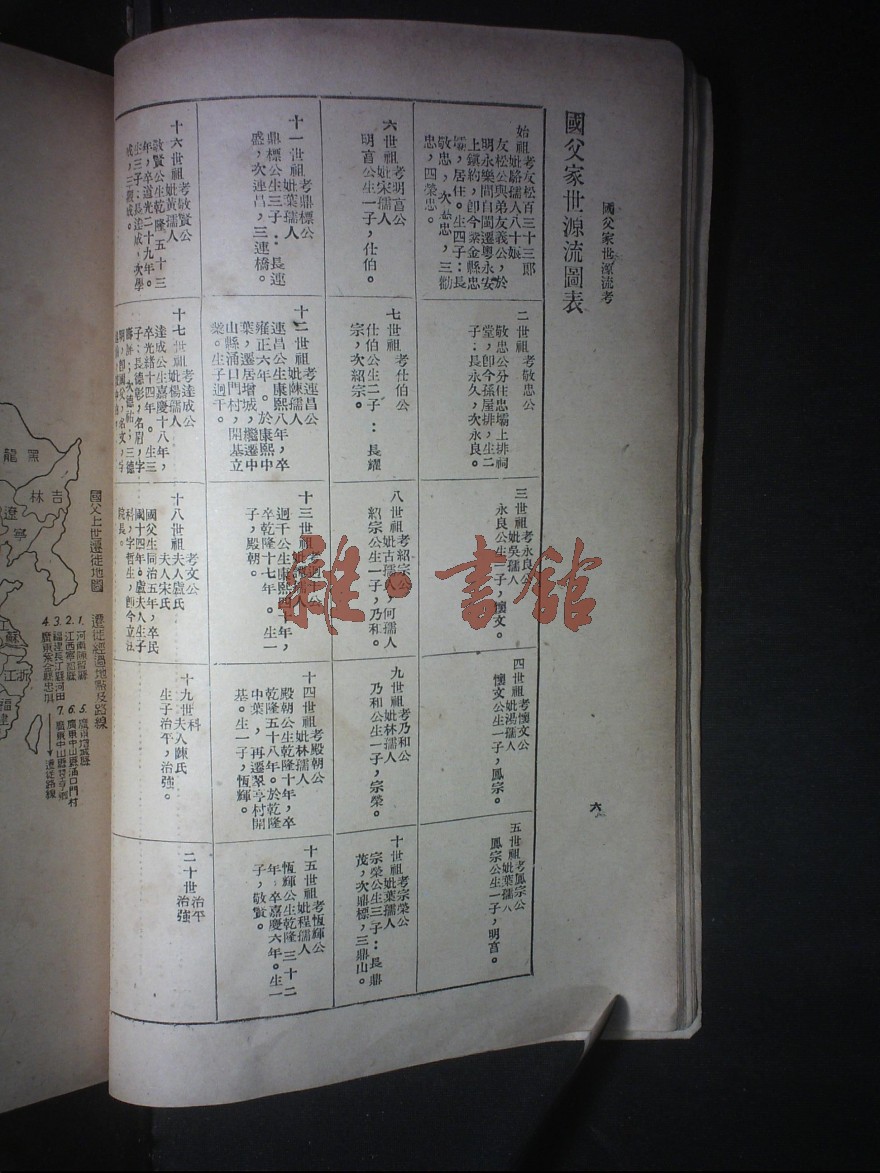 國父家世源流考
六
國父家世源流圖表
始祖考友松百三十三郎
妣駱孺人八十娘
友松公與弟友義公，於
明永樂間自閩遷粵永安
上鎮約，卽今紫金縣忠
壩，居住。生四子：長
敬忠，次
忠，三勸
忠，四榮忠。
二世祖考敬忠公
敬忠公分住忠壩上排祠
堂，卽今孫屋排，生二
子：長永久，次永良。
三世祖考永良公
妣吳孺人
永良公生一子，懷文。
四世祖考懷文公
妣湯孺人
懷文公生一子，鳳宗。
五世祖考鳳宗公
妣葉孺人
鳳宗公生一子，明
。
六世祖考明
公
妣宋孺人
明
公生一子，仕伯。
七世祖考仕伯公
仕伯公生二子：長耀
宗，次紹宗。
八世祖考紹宗公
妣古孺人，何孺人
紹宗公生一子，乃和。
九世祖考乃和公
妣林孺人
乃和公生一子，宗榮。
十世祖考宗榮公
妣葉孺人
宗榮公生三子：長鼎
茂，次鼎標，三鼎山。
十一世祖考鼎標公
妣葉孺人
鼎標公生三子：長連
盛，次連昌，三連橋。
十二世祖考連昌公
妣陳孺人
連昌公生康熙八年，卒
雍正六年。於康熙中
葉，遷居增城，繼遷中
山縣涌口門村，開基立
業。生子迥千。
十三世祖考迥千公
妣
孺人
迥千公生康熙四十年，
卒乾隆十七年。生一
子，殿朝。
十四世祖考殿朝公
妣林孺人
殿朝公生乾隆十年，卒
乾隆五十八年。於乾隆
中葉，再遷翠亨村開
基。生一子，恆輝。
十五世祖考恆輝公
妣程孺人
恆輝公生乾隆三十二
年，卒嘉慶六年。生一
子，敬賢。
十六世祖考敬賢公
妣黃孺人
敬賢公生乾隆五十三
年，卒道光二十九年。
生三子：長達成，次學
成，三觀成。
十七世祖考達成公
妣楊孺人
達成公生嘉慶十八年，
卒光緒十四年。生三
子：長德彰，名眉，字
壽屏；次德祐；三德
明，卽國父，名文，字
十八世祖考文公
夫人盧氏
夫人宋氏
國父生同治五年，卒民
國十四年。盧夫人生子
科，字哲生，卽今立法
院長。
十九世科
夫人陳氏
生子治平，治強。
二十世治平
治強
國父上世遷徙地圖
遷徙經過地點及路線
1. 河南陳留縣
2. 江西寧都縣
3. 福建長汀縣河田
4. 廣東紫金縣忠壩
5. 廣東增城縣
6. 廣東中山縣涌口門村
7. 廣東中山縣翠亨村
→遷徙路線
黑龍
吉林
遼寧
蘇
浙江
福建
雜·書館